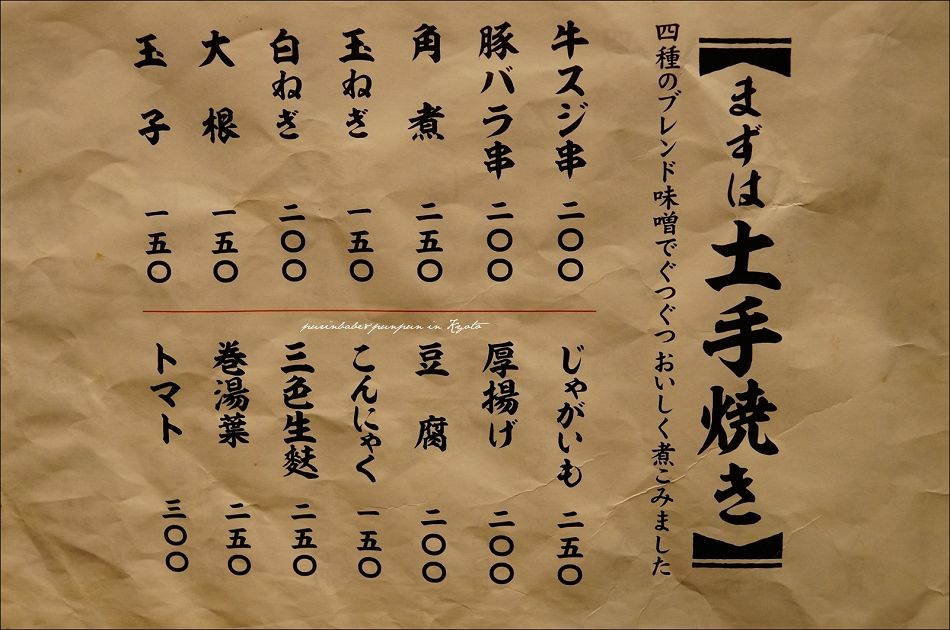 まずは土手焼き
四種のブレンド味噌でぐつぐつ おいしく煮こみました
牛スジ串 二〇〇
豚バラ串 二〇〇
角煮 二五〇
玉ねぎ 一五〇
白ねぎ 二〇〇
大根 一五〇
玉子 一五〇
じゃがいも 二五〇
厚揚げ 二〇〇
豆腐 二〇〇
こんにゃく 一五〇
三色生麩 二五〇
巻湯葉 二五〇
トマト 三〇〇
purinbabe&punpun in Kyoto